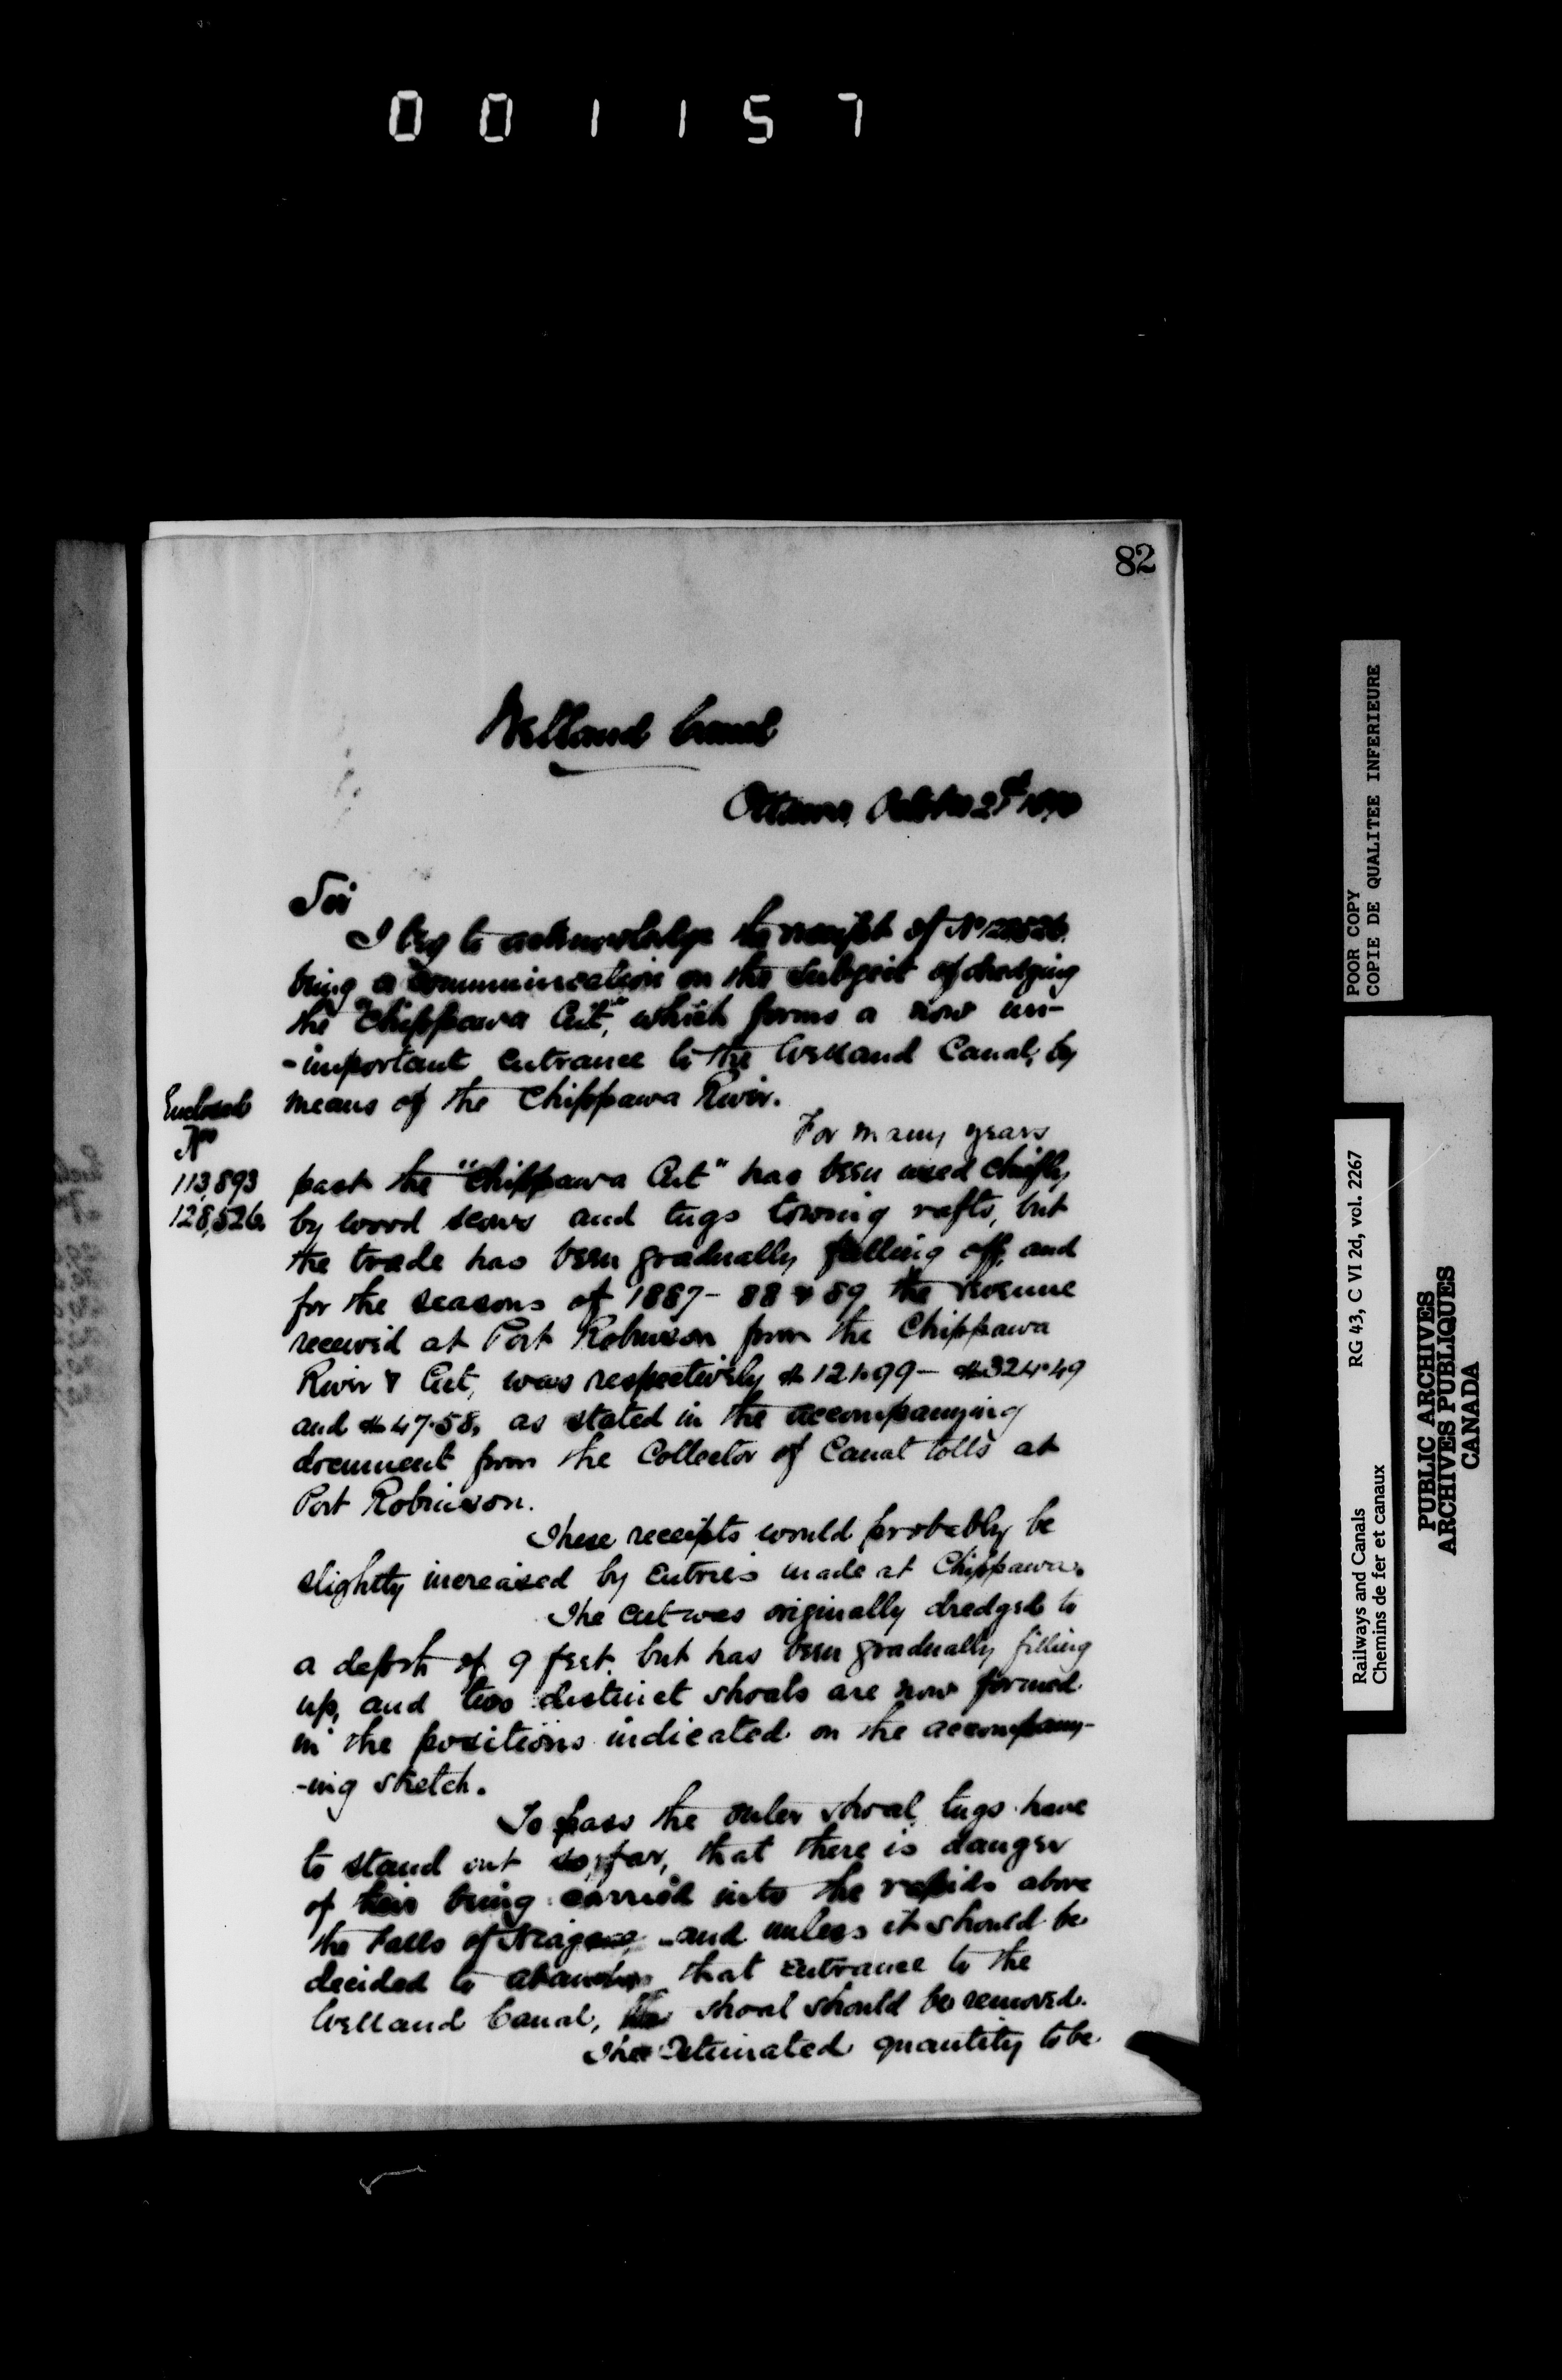 001157
82
Welland Canal
Ottawa, October 2nd 1890
Sir
I beg to acknowledge the receipt of No 128526.
being a communication on the subject of dredging
the "Chippawa Cut", which forms a now un-
-important entrance to the Welland Canal, by
means of the Chippawa River.
Enclosed
Nos
113,893
128,526
For many years
past the "Chippawa Cut" has been used chiefly
by wood scows and tugs towing rafts, but
the trade has been gradually falling off, and
for the seasons of 1887- 88 & 89 the revenue
received at Port Robinson from the Chippawa
River & Cut, was respectively $121.99 - $324.49
and $47.58, as stated in the accompanying
document from the Collector of Canal tolls at
Port Robinson.
These receipts would probably be
slightly increased by Entries made at Chippawa.
The cut was originally dredged to
a depth of 9 feet. but has been gradually filling
up, and two distinct shoals are now formed
in the positions indicated on the accompany-
-ing sketch.
To pass the outer shoal, tugs have
to stand out so far, that there is danger
of their being carried into the rapids above
the Falls of Niagara, and unless it should be
decided to abandon that entrance to the
Welland Canal, the shoal should be removed.
The Estimated quantity to be
POOR COPY
COPIE DE QUALITEE INFERIEURE
Railways and Canals RG 43, C VI 2d, vol. 2267
Chemins de fer et canaux
PUBLIC ARCHIVES
ARCHIVES PUBLIQUES
CANADA